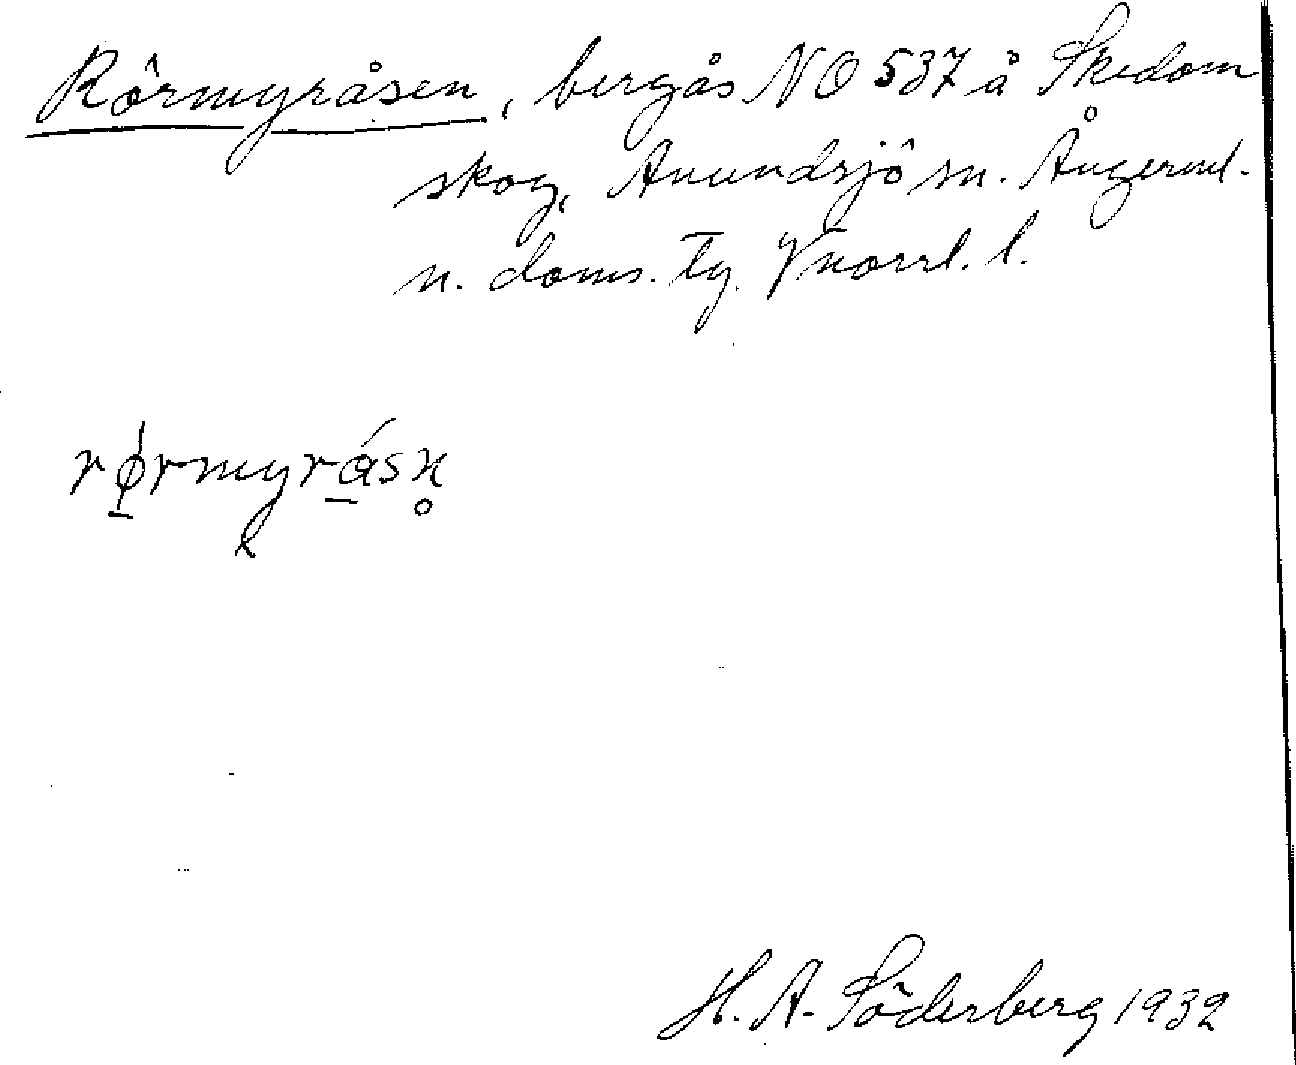 Rörmyråsen, bergås NO 537 å Skedom
skog, Anundsjö sn. Ångerml.
n. doms. Tg. Vnorrl. l.
rø̱rmyrá̱sn̥
H. A. Söderberg 1932